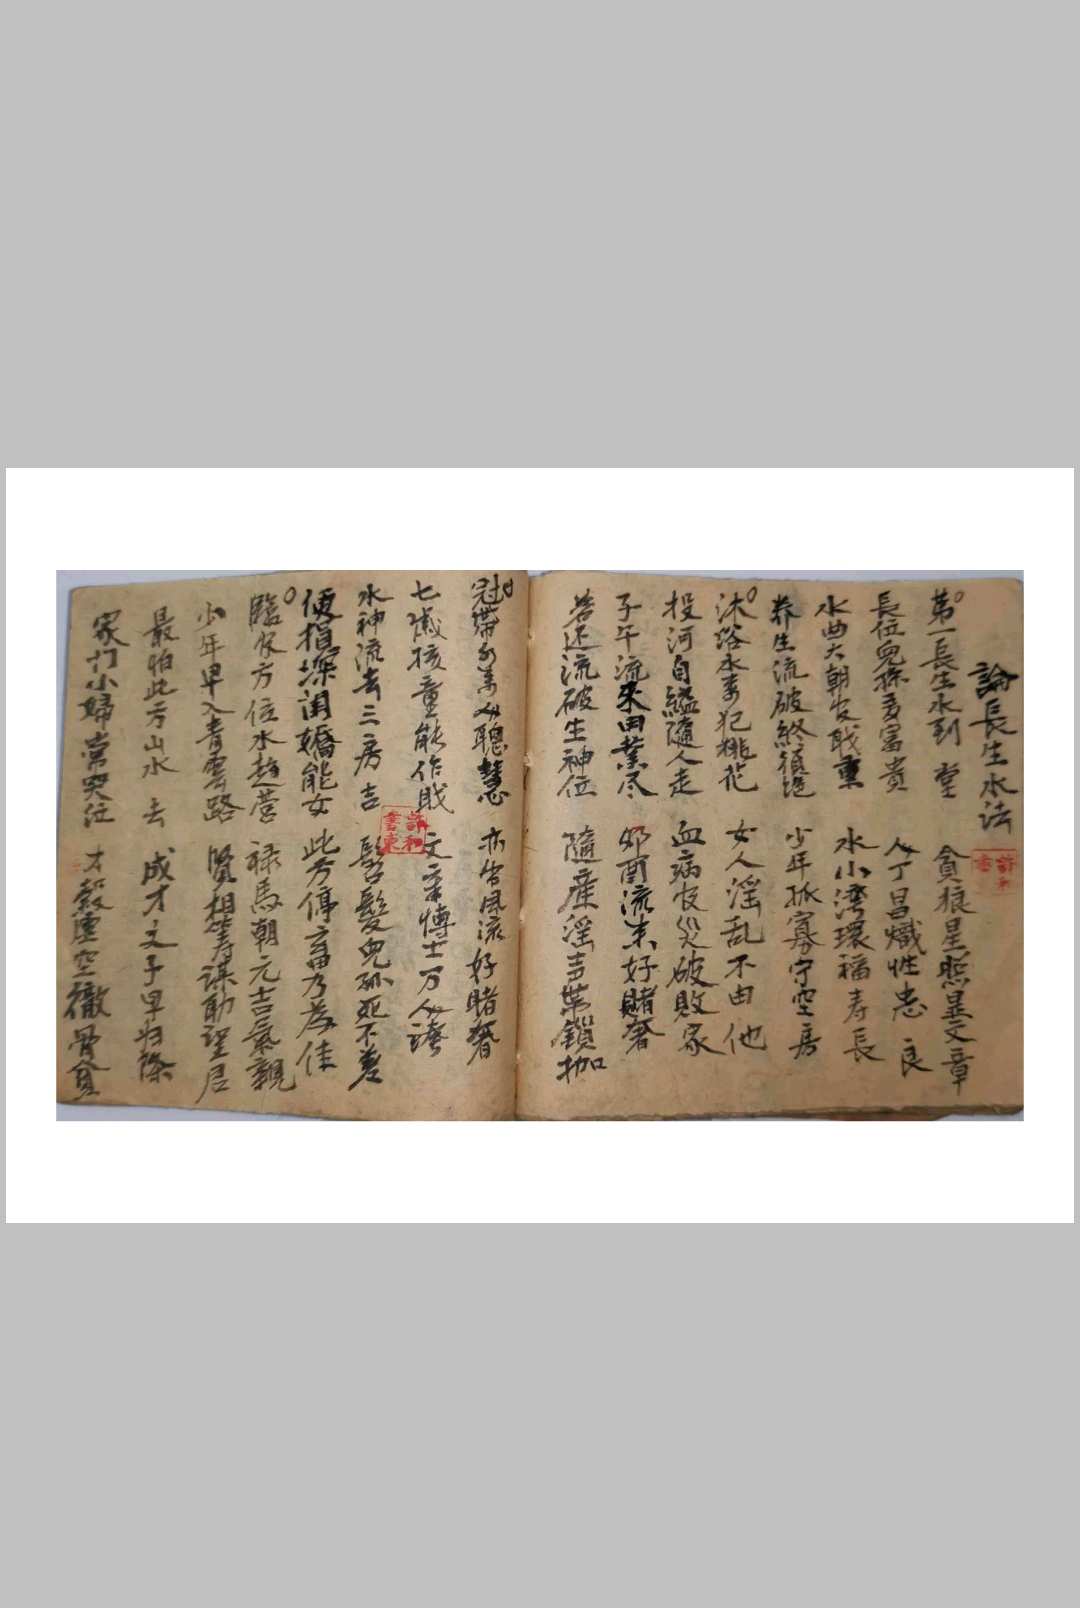 論長生水法
第一長生水到堂 貪狼星照显文章
長位兒孫多富貴 人丁昌熾性忠良
水曲大朝官職重 水小湾環福寿長
养生流破終須绝 少年孤寡守空房
沐浴水来犯桃花 女人淫乱不由他
投河自縊隨人走 血病官災破敗家
子午流來田業尽 卯酉流来好賭奢
若还流破生神位 隨産淫声带鎖枷
冠帶水来人聰慧 亦生風流好賭奢
七歲孩童能作戝 文章博士万人誇
水神流去三房吉 髫髮兒孤死不善
便損深闺嬌態女 此方停畜乃為佳
臨官方位水趨营 禄馬朝元吉氣親
少年早入青雲路 賢相筹謀助聖君
最怕此方山水去 成才之子早归陰
家门小婦常哭泣 才穀虛空徹骨貧